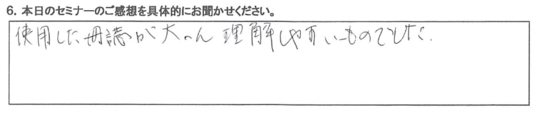 6. 本日のセミナーのご感想を具体的にお聞かせください。
使用した冊誌が大へん理解しやすいものでした.